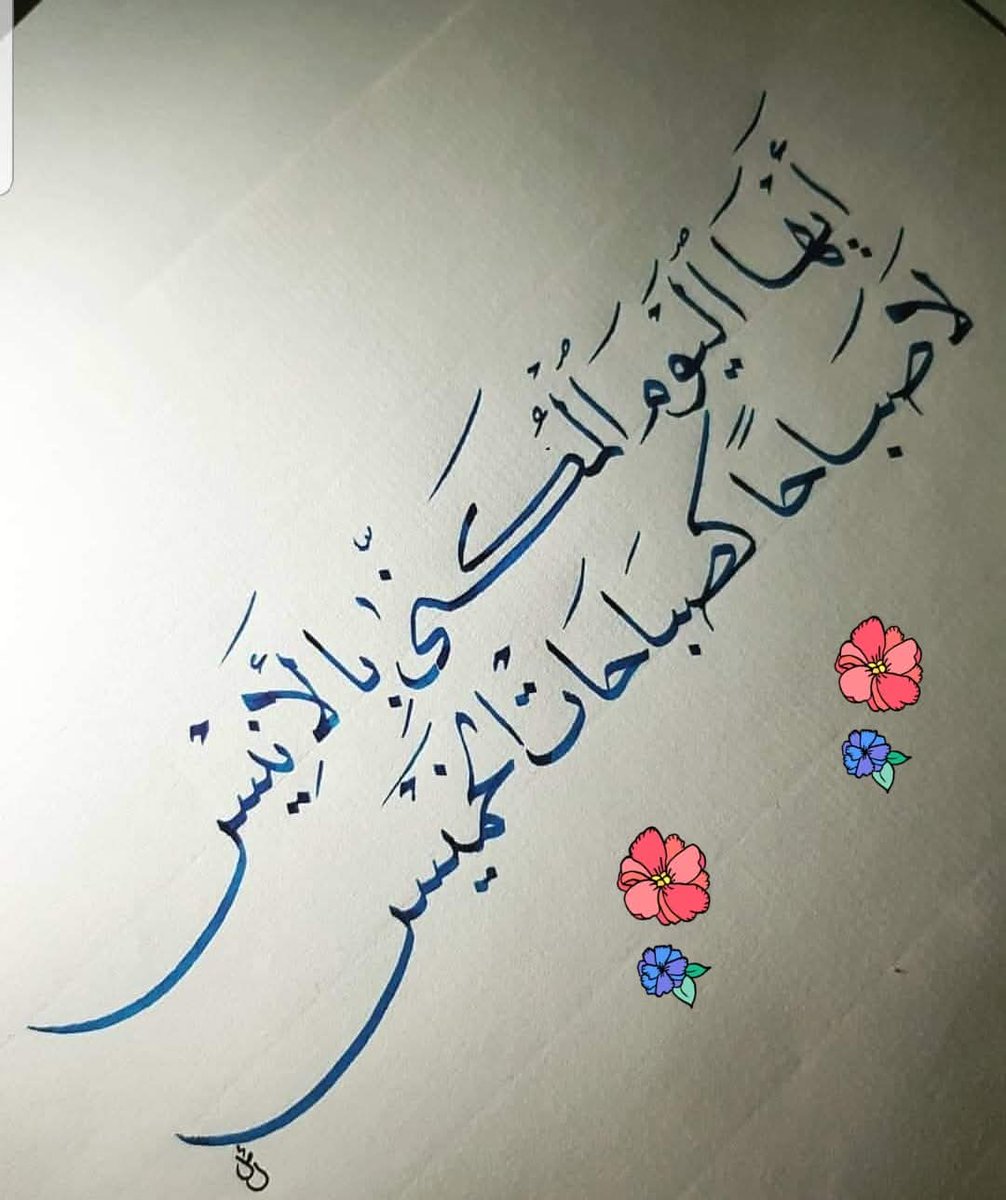 أَيُّهَا الْيَوْمَ الْمُكَنَّى بِالأَنِيْسِ
لَا صَبَاحًا كصبَاحَاتْ الْخَمِيْسِ